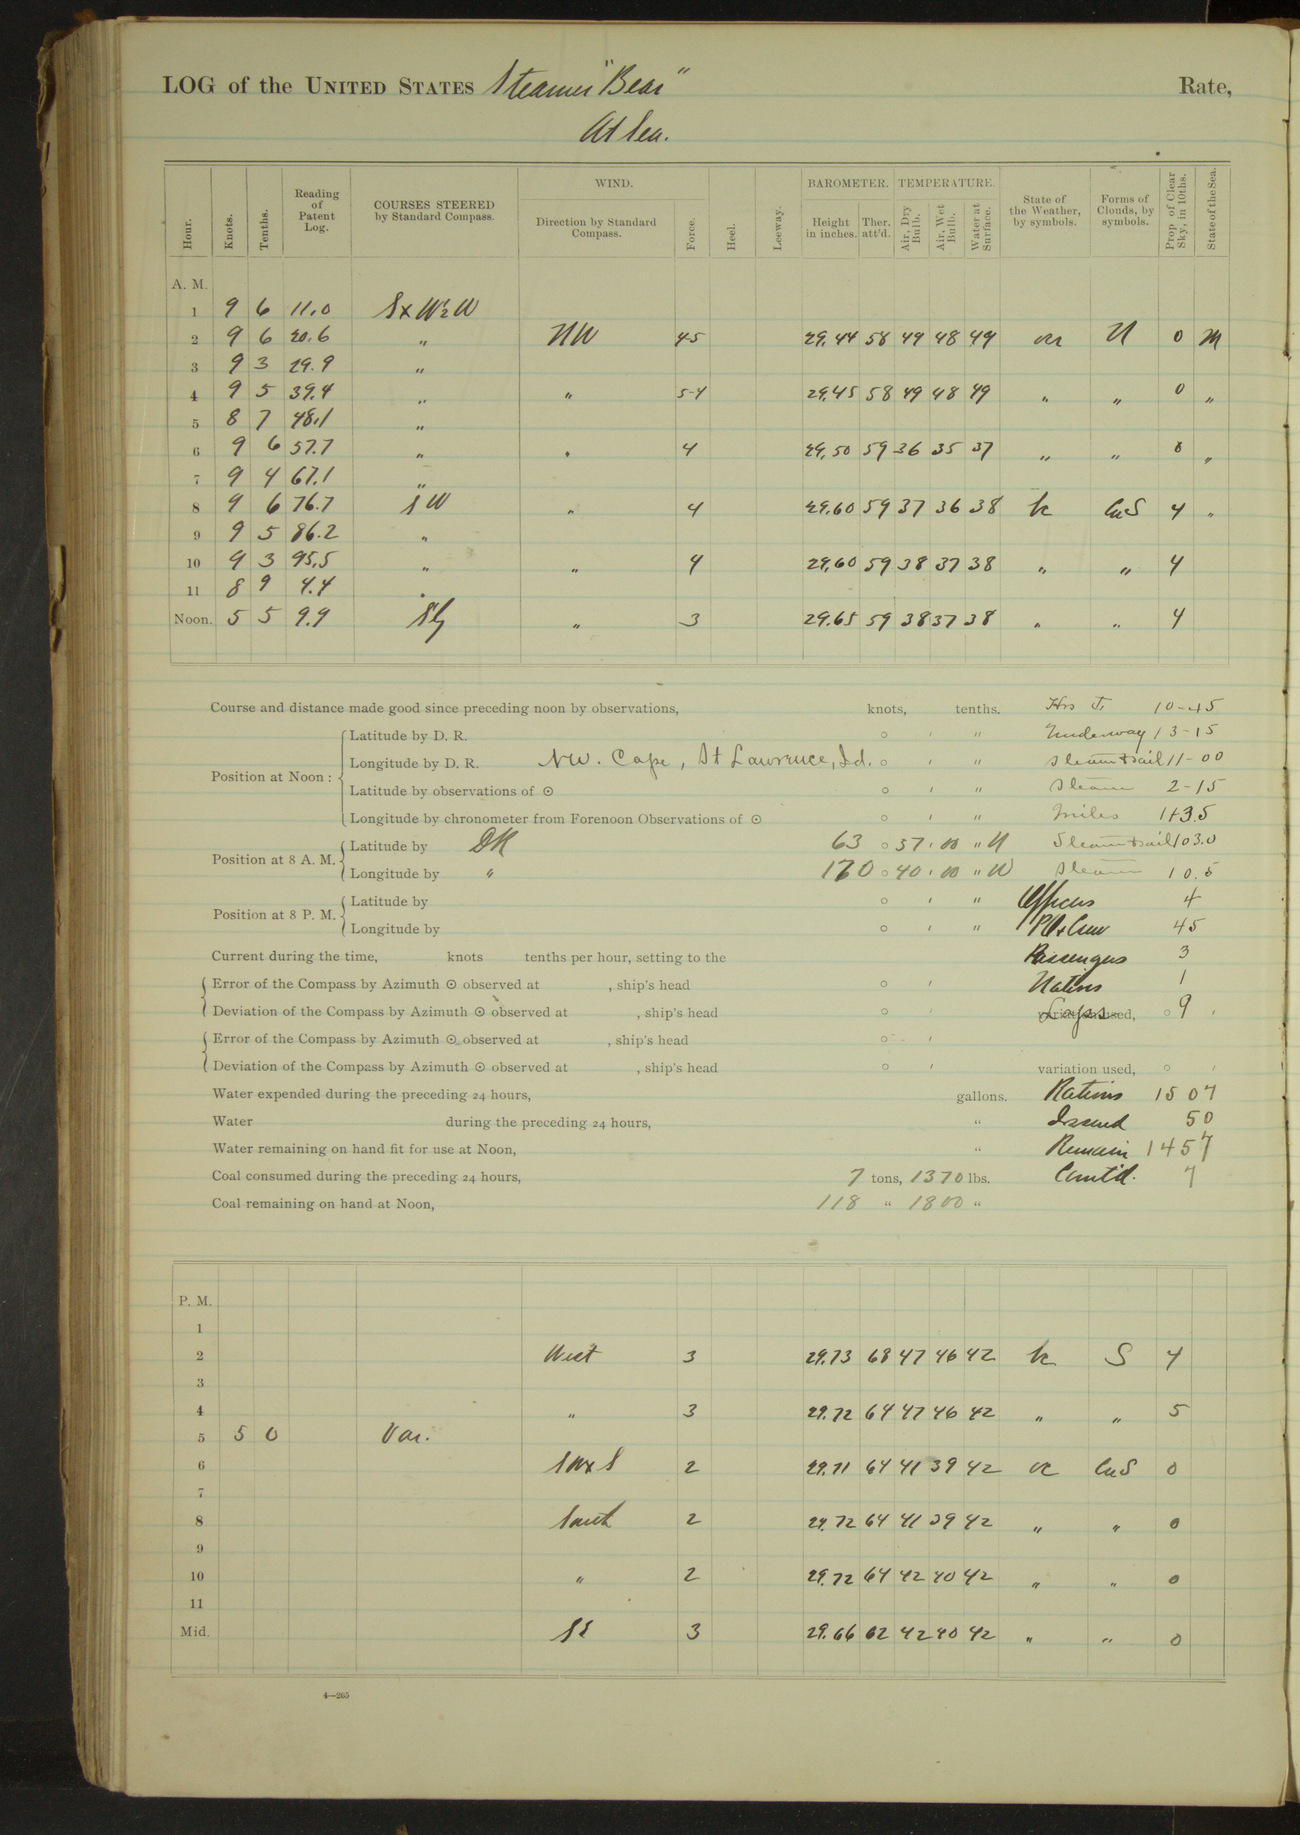 LOG of the UNITED STATES Steamer "Bear" Rate,
At Sea.
Hour. Knots. Tenths. Reading of Patent Log. COURSES STEERED by Standard Compass. WIND. Direction by Standard Compass. Force. Heel. Leeway. BAROMETER. Height in inches. Ther. att'd. TEMPERATURE. Air, Dry Bulb. Air, Wet Bulb. Water at Surface. State of the Weather, by symbols. Forms of Clouds, by symbols. Prop. of Clear Sky, in 10ths. State of the Sea.
A. M.
1 9 6 11.0 SxW½W
2 9 6 20.6 " NW 45 29.44 58 49 48 49 N 0 M
3 9 3 29.9 "
4 9 5 39.4 " " 5-4 29.45 58 49 48 49 " " 0 "
5 8 7 48.1 "
6 9 6 57.7 " " 4 29.50 59 36 35 37 " " 0 "
7 9 4 67.1 "
8 9 6 76.7 SW " 4 29.60 59 37 36 38 bc CuS 4 "
9 9 5 86.2 "
10 9 3 95.5 " " 4 29.60 59 38 37 38 " " 4
11 8 9 4.4 "
Noon. 5 5 9.9 " 3 29.65 59 38 37 38 " " 4
Course and distance made good since preceding noon by observations, knots, tenths. Hrs 10-45
Position at Noon: Latitude by D. R. ° ' " Underway 13-15
Longitude by D. R. NW. Cape, St Lawrence, Id. ° ' " Steam & sail 11-00
Latitude by observations of ☉ ° ' " Steam 2-15
Longitude by chronometer from Forenoon Observations of ☉ ° ' " Miles 113.5
Position at 8 A. M. Latitude by DR 63 ° 57 ' 00 " N Steam & sail 103.0
Longitude by " 170 ° 40 ' 00 " W Steam 10.5
Position at 8 P. M. Latitude by ° ' " Officers 4
Longitude by ° ' " Crew 45
Current during the time, knots tenths per hour, setting to the Passengers 3
Error of the Compass by Azimuth ☉ observed at , ship's head ° ' Natives 1
Deviation of the Compass by Azimuth ☉ observed at , ship's head ° ' variation used, ° 9 '
Error of the Compass by Azimuth ☉ observed at , ship's head ° '
Deviation of the Compass by Azimuth ☉ observed at , ship's head ° ' variation used, ° '
Water expended during the preceding 24 hours, gallons. Rations 1507
Water during the preceding 24 hours, " Issued 50
Water remaining on hand fit for use at Noon, " Remain 1457
Coal consumed during the preceding 24 hours, 7 tons, 1370 lbs. Com'td. 7
Coal remaining on hand at Noon, 118 " 1800 "
P. M.
1
2 West 3 29.73 68 47 46 42 bc S 4
3
4 " 3 29.72 64 47 46 42 " " 5
5 5 0 Var.
6 SWxS 2 29.71 64 41 39 42 oc CuS 0
7
8 South 2 29.72 64 41 39 42 " " 0
9
10 " 2 29.72 64 42 40 42 " " 0
11
Mid. SE 3 29.66 62 42 40 42 " " 0
4—265